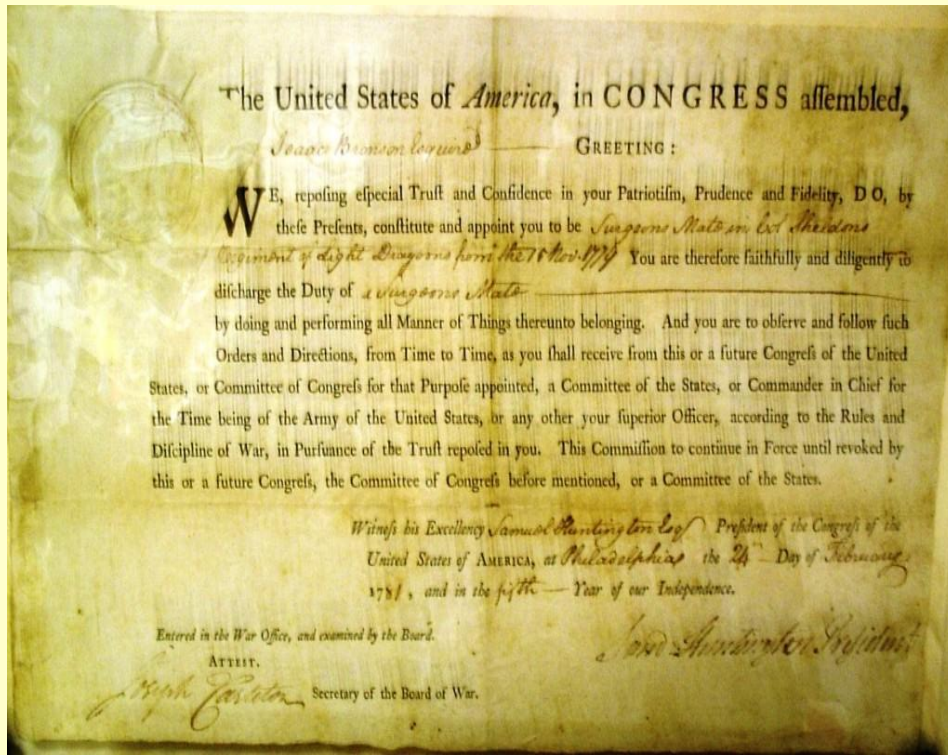 The United States of America, in CONGRESS aſſembled,
Isaac Bronson Esquire GREETING :
WE, repoſing eſpecial Truſt and Confidence in your Patriotiſm, Prudence and Fidelity, DO, by
theſe Preſents, conſtitute and appoint you to be Surgeons Mate in Col Sheldons
Regiment of Light Dragoons from the 15 Nov. 1779 You are therefore faithfully and diligently to
diſcharge the Duty of a Surgeons Mate
by doing and performing all Manner of Things thereunto belonging. And you are to obſerve and follow ſuch
Orders and Directions, from Time to Time, as you ſhall receive from this or a future Congreſs of the United
States, or Committee of Congreſs for that Purpoſe appointed, a Committee of the States, or Commander in Chief for
the Time being of the Army of the United States, or any other your ſuperior Officer, according to the Rules and
Diſcipline of War, in Purſuance of the Truſt repoſed in you. This Commiſſion to continue in Force until revoked by
this or a future Congreſs, the Committee of Congreſs before mentioned, or a Committee of the States.
Witneſs his Excellency Samuel Huntington Esq Preſident of the Congreſs of the
United States of AMERICA, at Philadelphia the 24th Day of February
1781, and in the fifth Year of our Independence.
Entered in the War Office, and examined by the Board.
Sam Huntington Preſident
ATTEST.
Joseph Carleton Secretary of the Board of War.